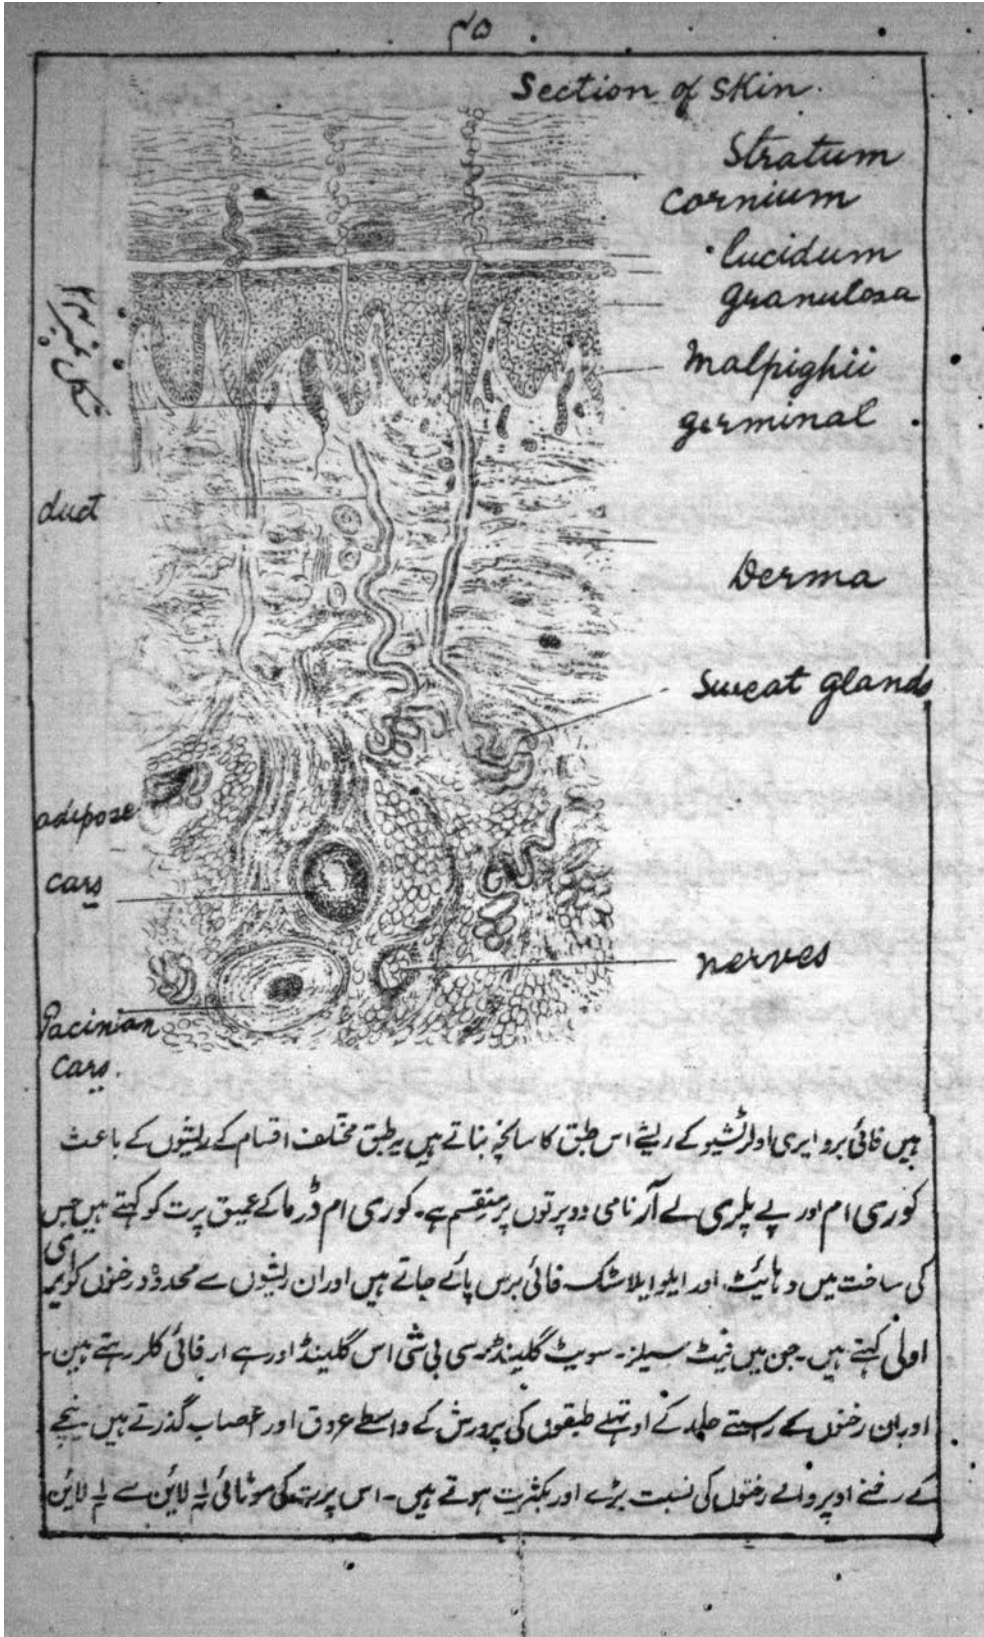 ۴۵
Section of Skin.
Stratum
Cornium
lucidum
granulosa
Malpighii
germinal
شکل نمبر
duct
Derma
Sweat glands
adipose
cars
nerves
Pacinian
Cars.
ہیں فائی برو ایری اولر ٹشیو کے ریشے اس طبق کا سانچہ بناتے ہیں یہ طبق مختلف اقسام کے ریشوں کے باعث
کوری ام اور پے پلری لے آر نامی دو پرتوں پر منقسم ہے۔ کوری ام ڈرما کے عمیق پرت کو کہتے ہیں جس
کی ساخت میں وہائیٹ اور ایلو ایلاسٹک فائی برس پائے جاتے ہیں اور ان ریشوں سے محدود رخنوں کو
اولی کہتے ہیں۔ جن میں فیٹ سیلز۔ سویٹ گلینڈز سی بی شی اس گلینڈ اور ہے ار فائی کلر رہتے ہین۔
اور ان رخنوں کے رستے جلد کے اوتھلے طبقوں کی پرورش کے واسطے عروق اور اعصاب گذرتے ہیں نیچے
کے رخنے اوپر والے رخنوں کی نسبت بڑے اور بکثرت ہوتے ہیں۔ اس پرت کی موٹائی لائین سے لائین